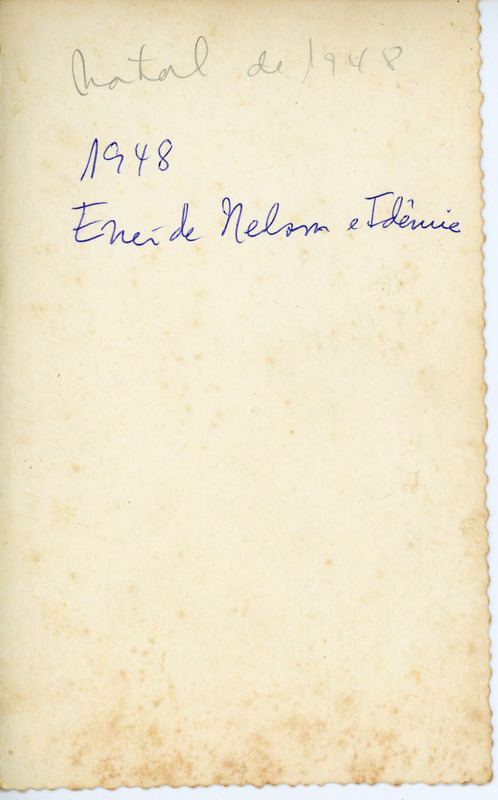 Natal de 1948
1948
Eneide Nelson e Idênie